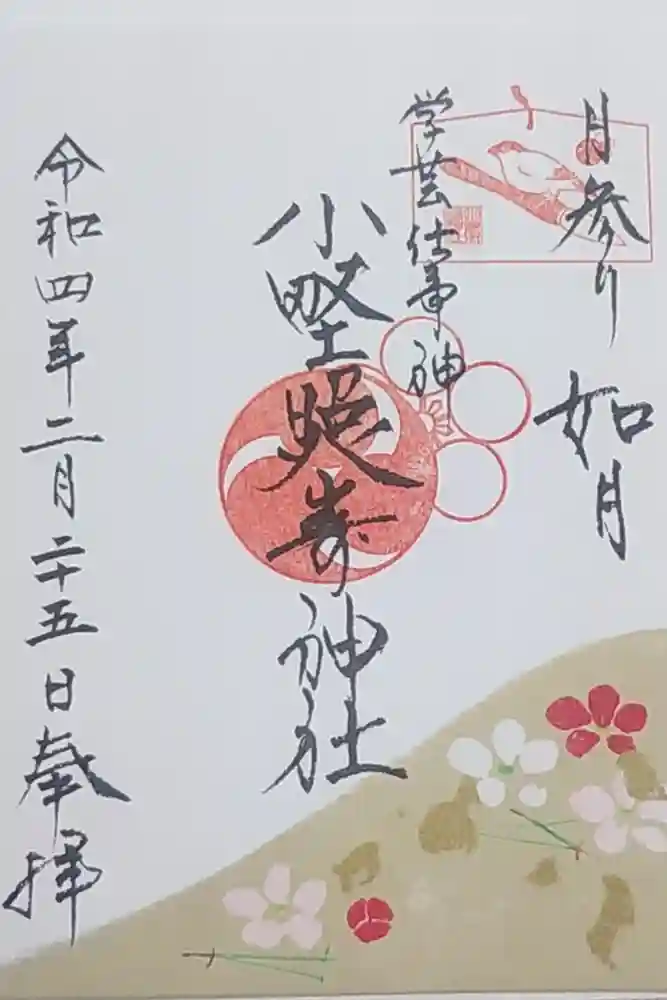 月参り 如月
学芸仕事神
小野照崎神社
令和四年二月二十五日奉拝